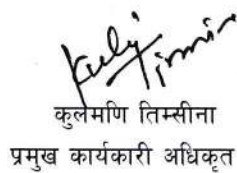 कुलमणि तिम्सीना
प्रमुख कार्यकारी अधिकृत